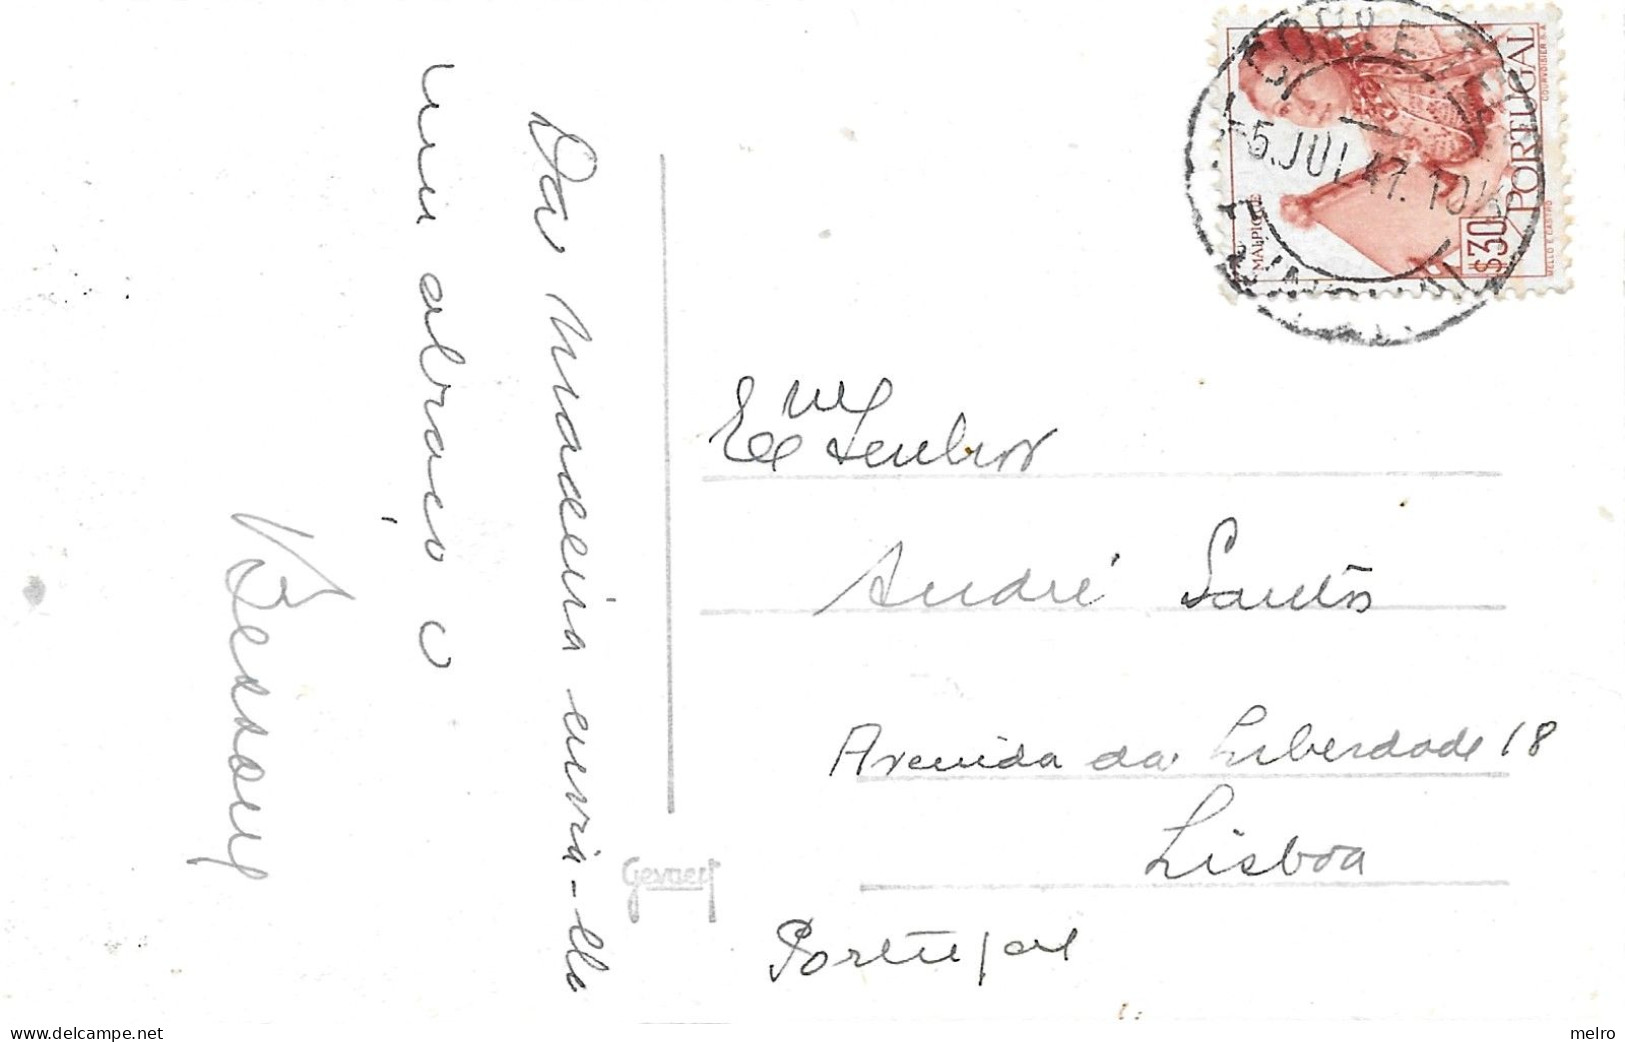 Da Madeira envia-lhe
um abraço o
Bessone
Exmo Senhor
André Santos
Avenida da Liberdade 18
Lisboa
Portugal
Gevaert
CORREIOS
-5.JUL.47.10
FUNCHAL
PORTUGAL
$30
MALPIQUE
COURVOISIER S.A.
MELLO E CASTRO
www.delcampe.net
melro